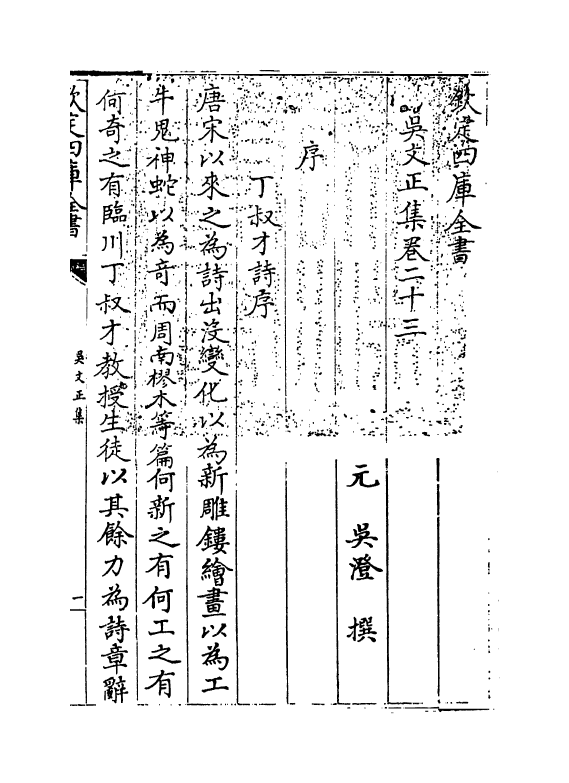 欽定四庫全書
吳文正集卷二十三
元　吳澄　撰
序
丁叔才詩序
唐宋以來之為詩出沒變化以為新雕鏤繪畫以為工
牛鬼神蛇以為奇而周南樛木等篇何新之有何工之有
何奇之有臨川丁叔才教授生徒以其餘力為詩章辭
欽定四庫全書
吳文正集
一